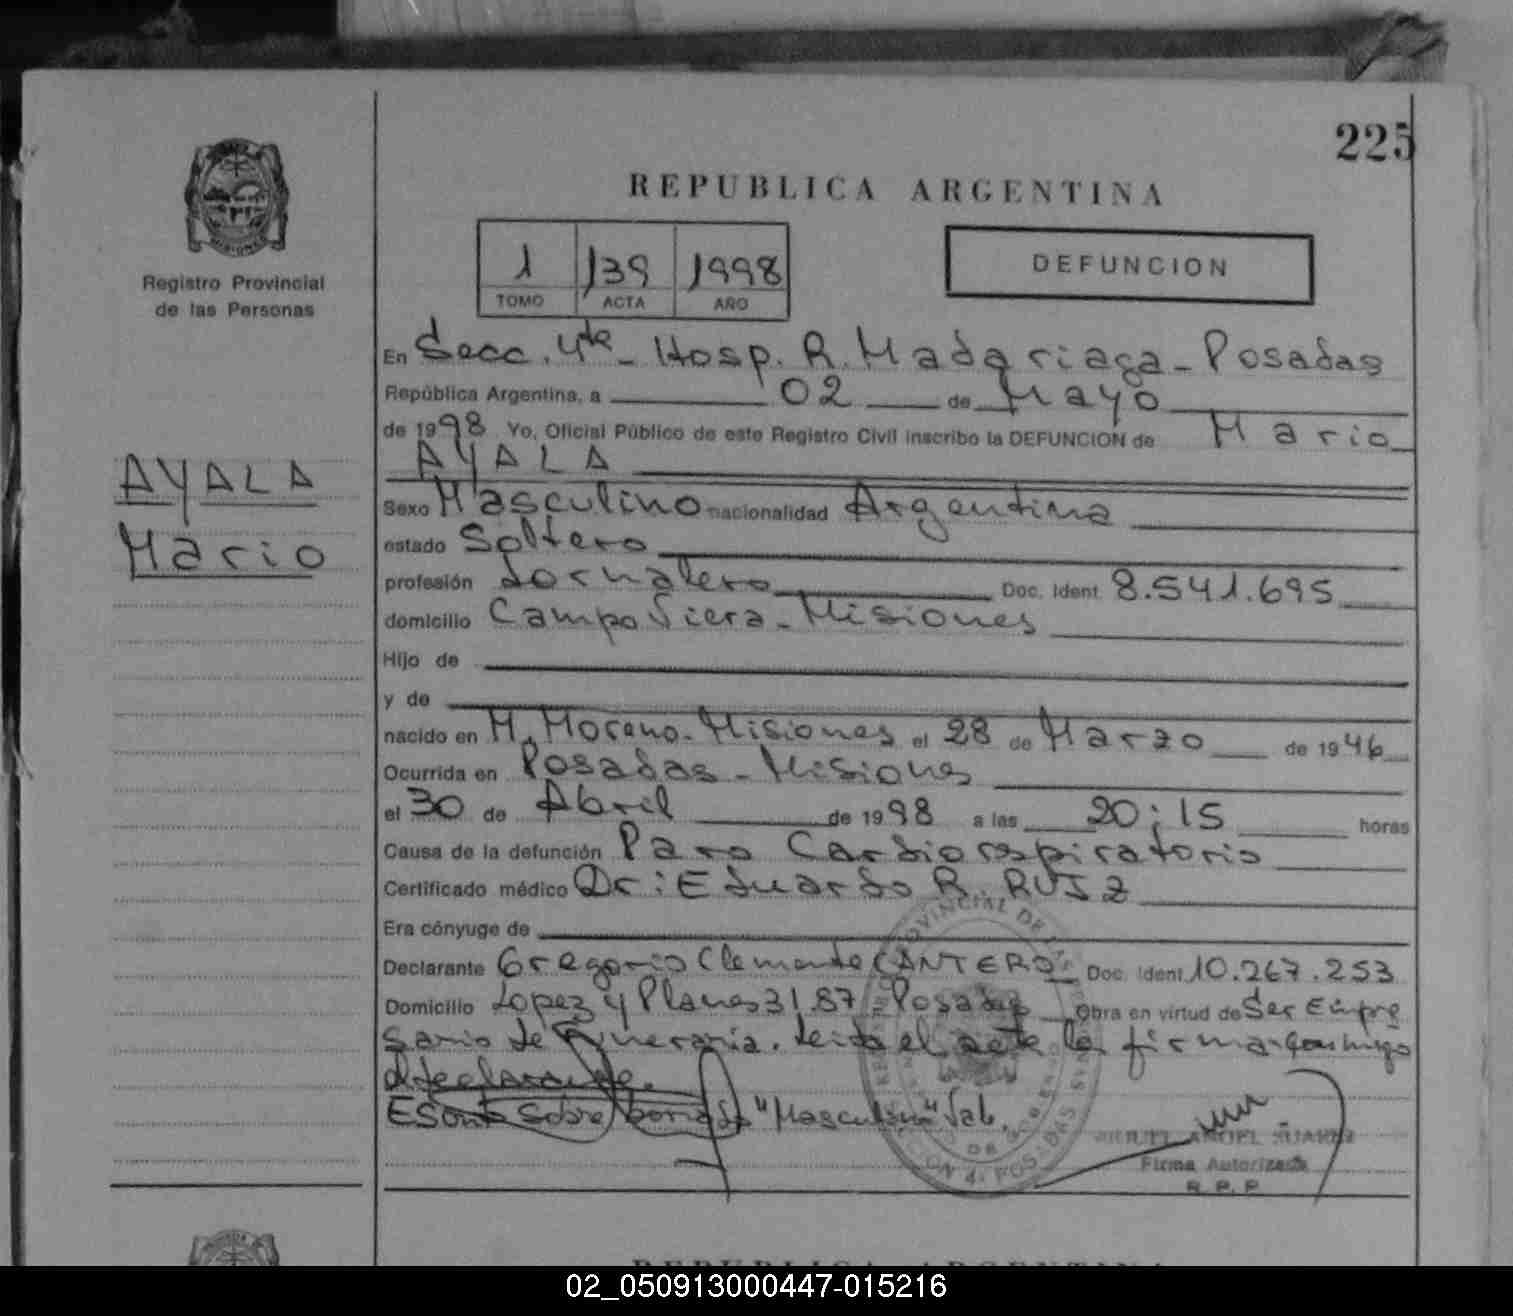 225
REPUBLICA ARGENTINA
MISIONES
Registro Provincial
de las Personas
1 139 1998
TOMO ACTA AÑO
DEFUNCION
En Secc. 4ta - Hosp. R. Madariaga - Posadas
República Argentina, a 02 de Mayo
de 1998 Yo, Oficial Público de este Registro Civil inscribo la DEFUNCION de Mario
AYALA
AYALA
Mario
Sexo Masculino nacionalidad Argentina
estado Soltero
profesión Jornalero Doc. Ident. 8.541.695
domicilio Campo Viera - Misiones
Hijo de
y de
nacido en M. Moreno - Misiones el 28 de Marzo de 1946
Ocurrida en Posadas - Misiones
el 30 de Abril de 1998 a las 20:15 horas
Causa de la defunción Paro Cardiorespiratorio
Certificado médico Dr: Eduardo R. RUIZ
Era cónyuge de
Declarante Gregorio Clemente CANTERO Doc. Ident. 10.267.253
Domicilio Lopez y Planes 3187 - Posadas Obra en virtud de Ser Empre
sario de Funeraria. Leida el acta la firma conmigo
el declarante.
Escrito sobre borrado "Masculino" Vale.
MIGUEL ANGEL SUAREZ
Firma Autorizada
R. P. P.
REPUBLICA ARGENTINA
02_050913000447-015216